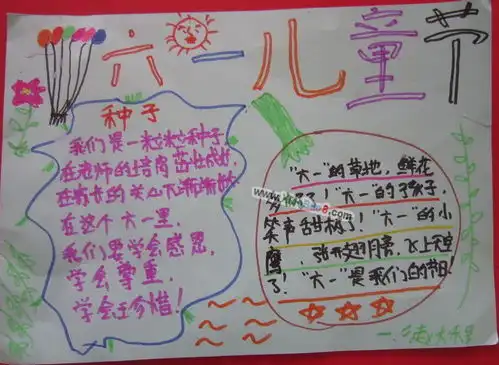 六一儿童节
种子
我们是一粒粒种子,
在老师的培育茁壮成长
在家长的关心下渐渐长
在这个六一里,
我们要学会感恩,
学会尊重,
学会珍惜!
"六一"的草地,鲜花
了!"六一"的孩子,
笑声甜极了!"六一"的小
鹰,张开翅膀,飞上天空
了!"六一"是我们的节日!